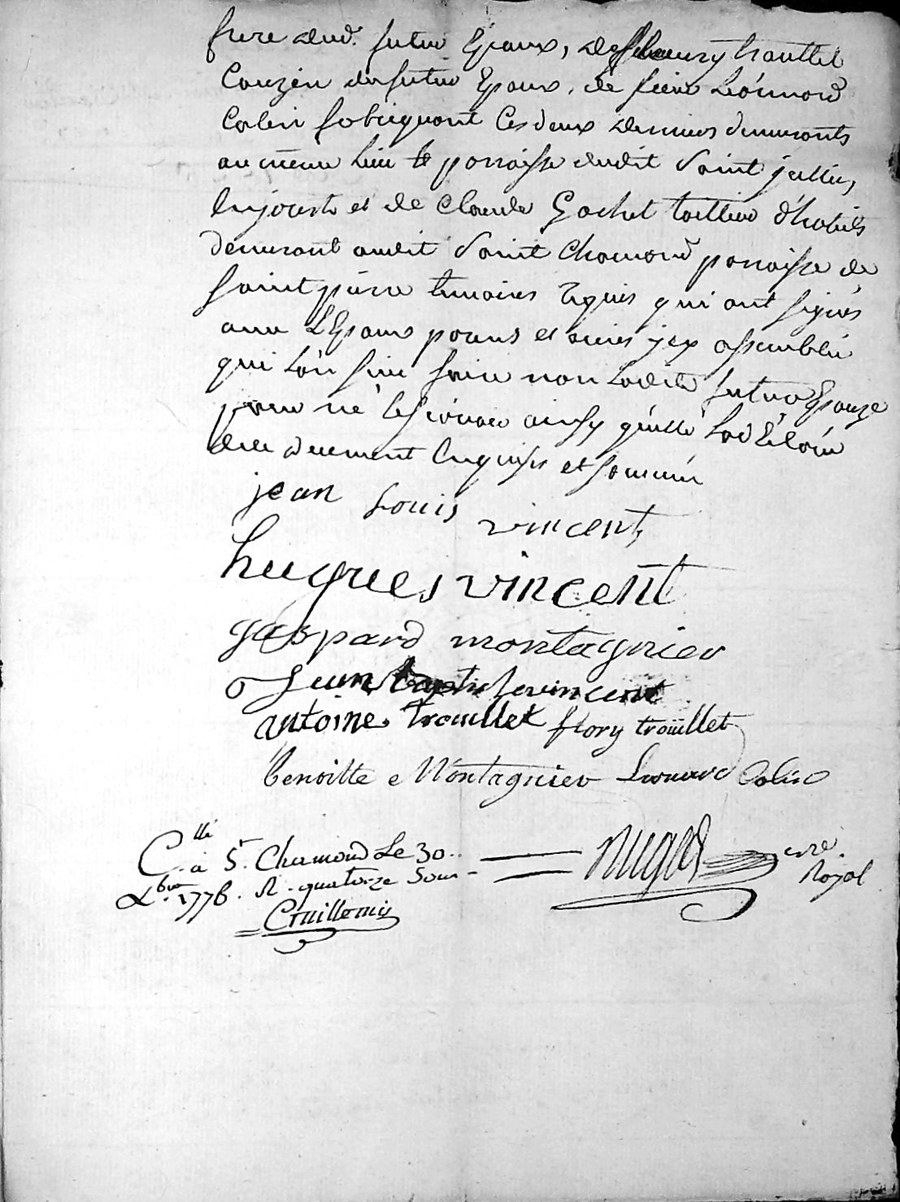 frere dud. futur Epoux, de fleury trouillet
Couzin du futur Epoux, de sieur Léonnard
Colin fabriquant Ces deux derniers demeurants
au même lieu & paroisse dudit Saint jullien
en jourest et de Claude Gachet tailleur d'habits
demeurant audit Saint Chamond paroisse de
Saint pierre temoins requis qui ont signés
avec L'Epoux parents et amis jcy assemblés
qui l'on sçu faire non ladite future Epouze
pour ne le sçavoir ainsy quelle l'a déclaré
de ce deuement enquise et sommée
jean Louis vincent
hugues vincent
gaspard montagnier
Jean baptiste vincent
antoine trouillet flory troüillet
Benoitte Montagnier Leonard Colin
C.llé a St. Chamond Le 30
Xbre 1776. R. quatorze Sous
nugues nre
Royal